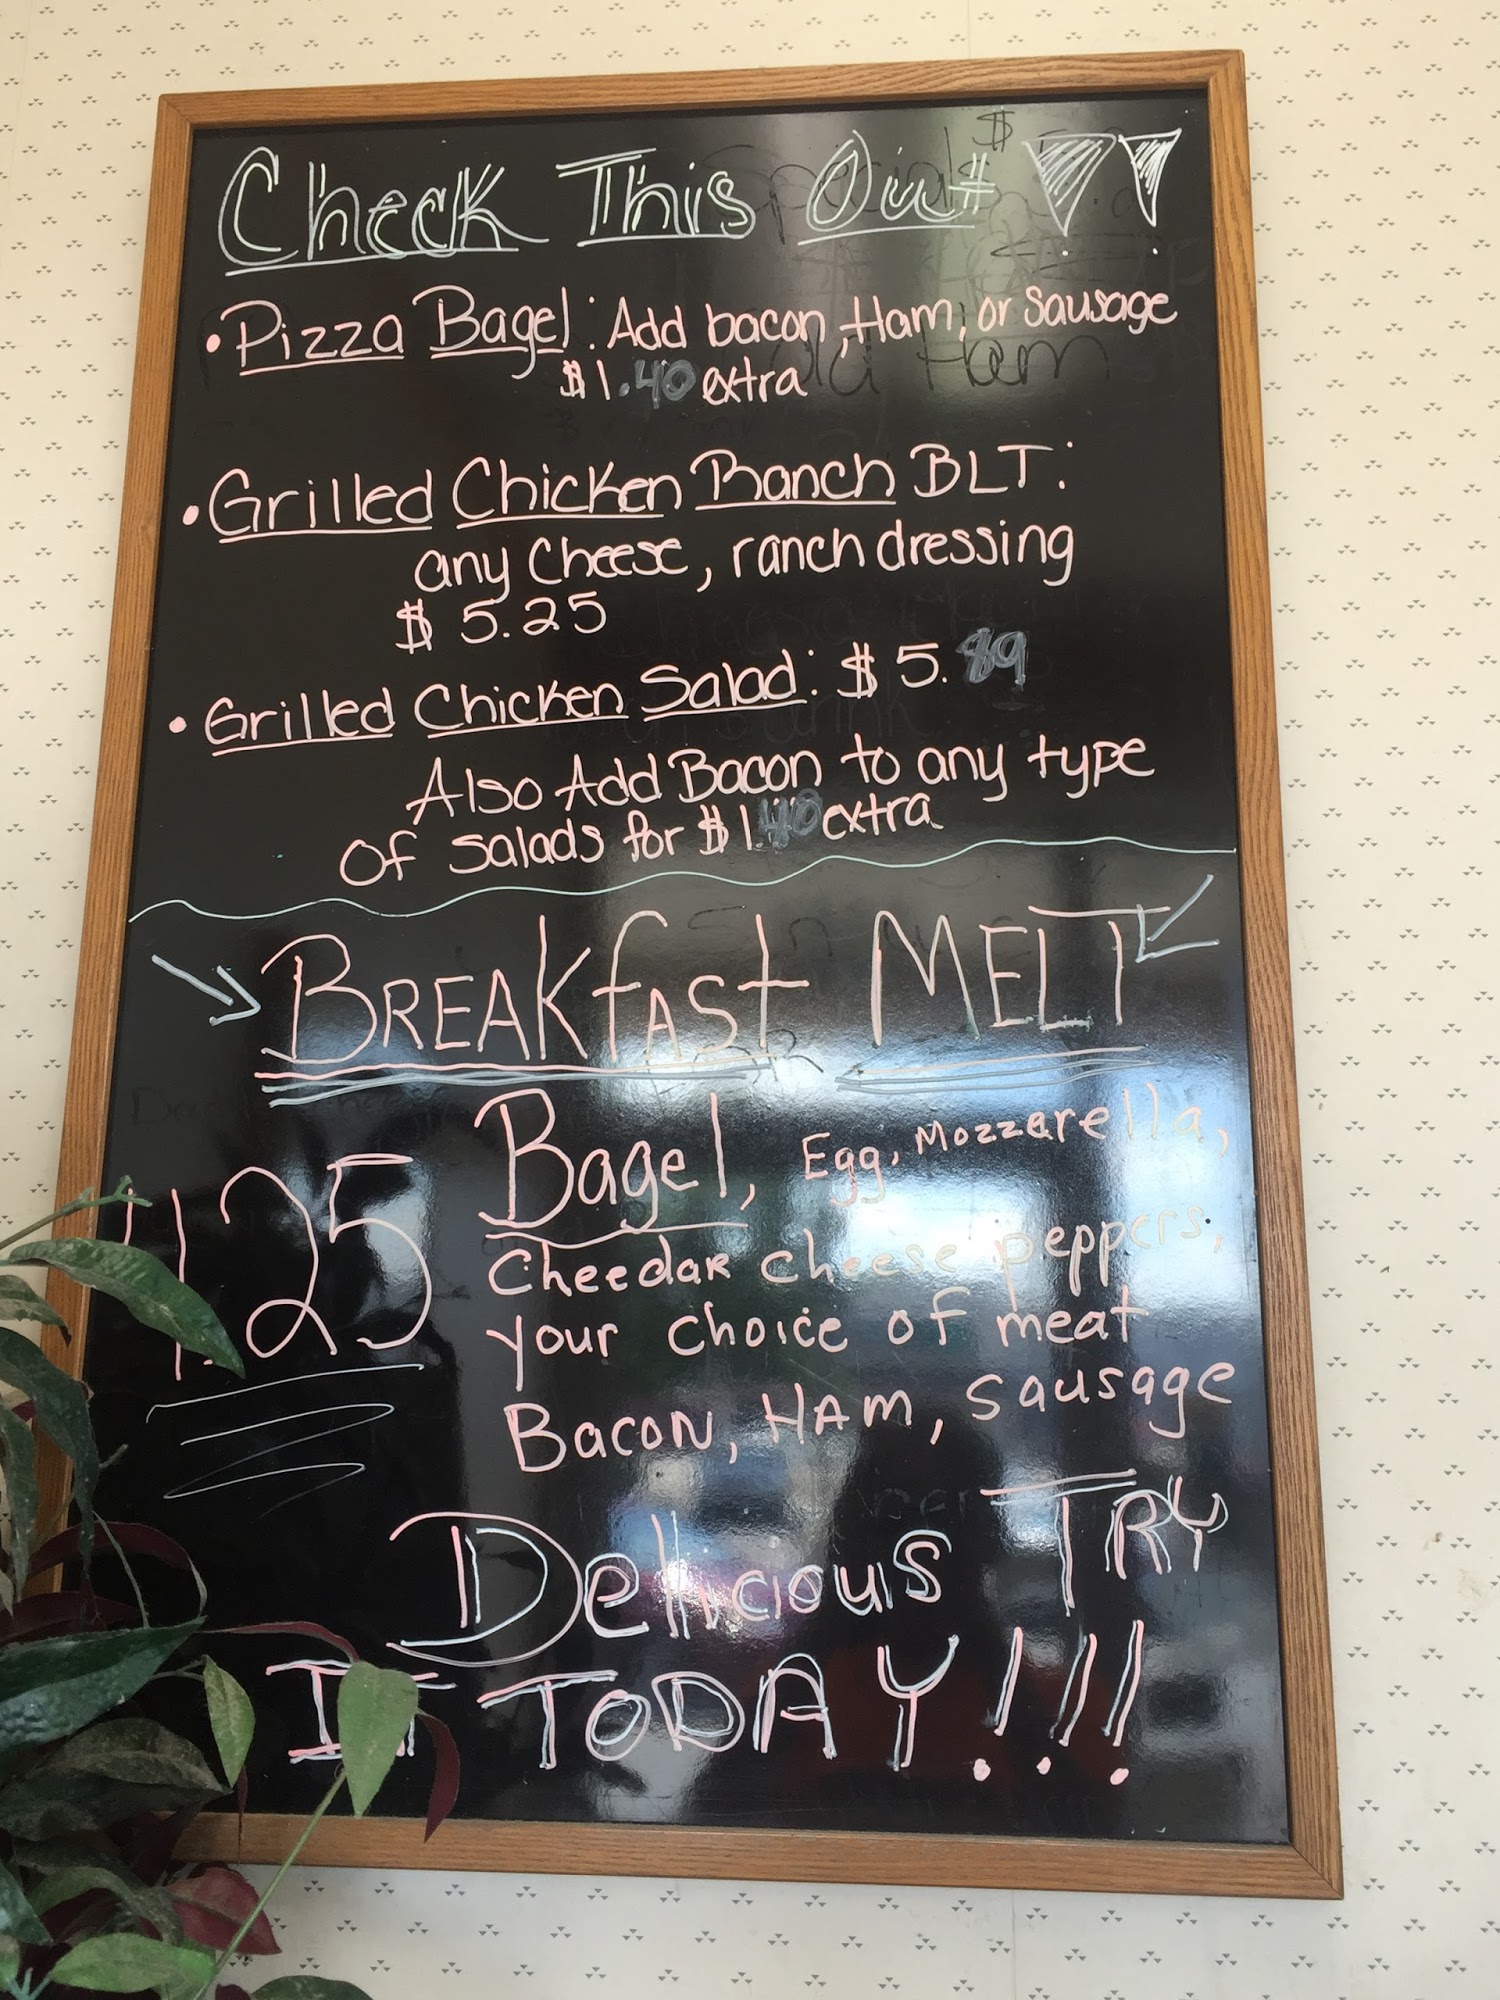 Check This Out !!
• Pizza Bagel: Add bacon, Ham, or Sausage
$1.40 extra
• Grilled Chicken Ranch BLT:
any Cheese, ranch dressing
$ 5.25
• Grilled Chicken Salad: $ 5.89
Also Add Bacon to any type
Of Salads for $1.40 extra
BREAKfAST MELT
Bagel, Egg, Mozzarella,
Cheedar cheese peppers,
your choice of meat
Bacon, HAM, Sausage
.25
Delicious TRY
IT TODAY!!!